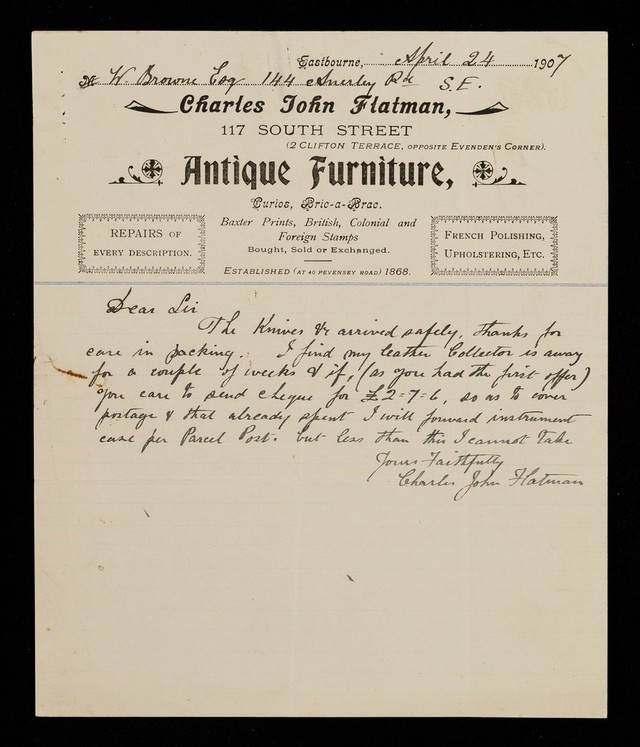 Eastbourne, April 24 1907
M W. Browne Esq 144 Anerley Rd S.E.
Charles John Flatman,
117 SOUTH STREET
(2 CLIFTON TERRACE, OPPOSITE EVENDEN'S CORNER).
Antique Furniture,
Curios, Bric-a-Brac.
REPAIRS OF
EVERY DESCRIPTION.
Baxter Prints, British, Colonial and
Foreign Stamps
Bought, Sold or Exchanged.
FRENCH POLISHING,
UPHOLSTERING, ETC.
ESTABLISHED (AT 40 PEVENSEY ROAD) 1868.
Dear Sir
The Knives &c arrived safely, thanks for
care in packing. I find my leather Collector is away
for a couple of weeks & if, (as you had the first offer)
you care to send cheque for £2=7=6, so as to cover
postage & that already spent I will forward instrument
case per Parcel Post. but less than this I cannot take
Yours Faithfully
Charles John Flatman